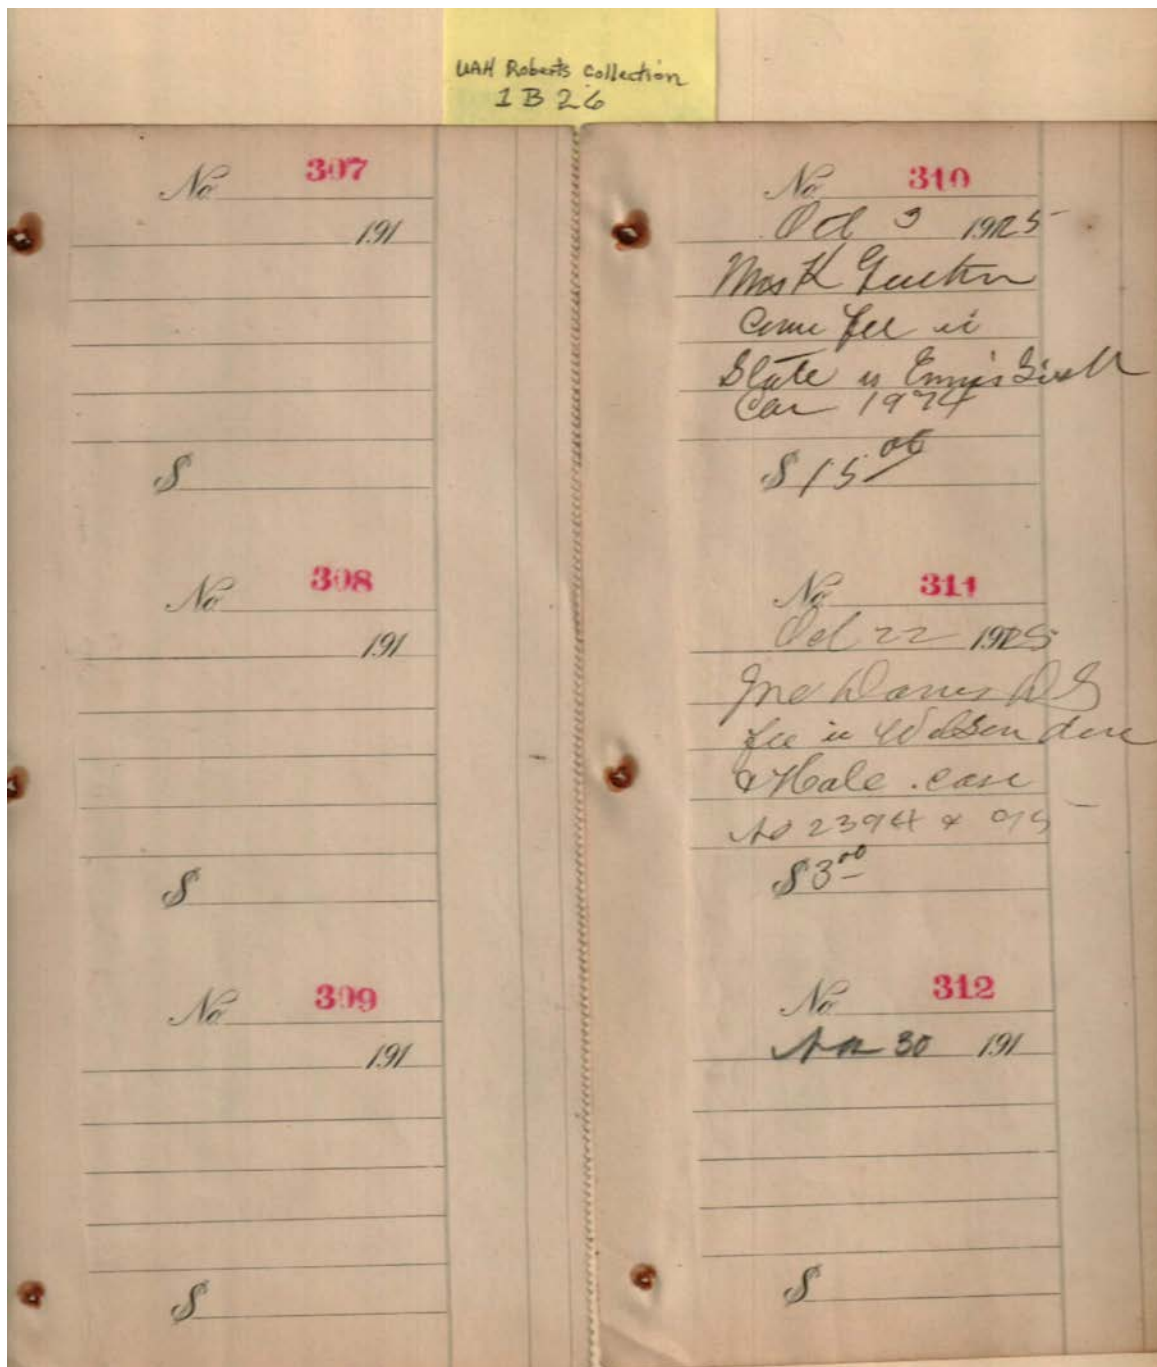 UAH Roberts Collection
1B26
No 307
191
$
No 308
191
$
No 309
191
$
No 310
Oct 3 1925
Mos K
Com fee in
State vs Ennis
Cas 1974
$ 15 00
No 311
Oct 22 1925
Jno Davis D S
fee in Wilson
& Hale case
No 2394 & 95
$ 3 00
No 312
30 191
$